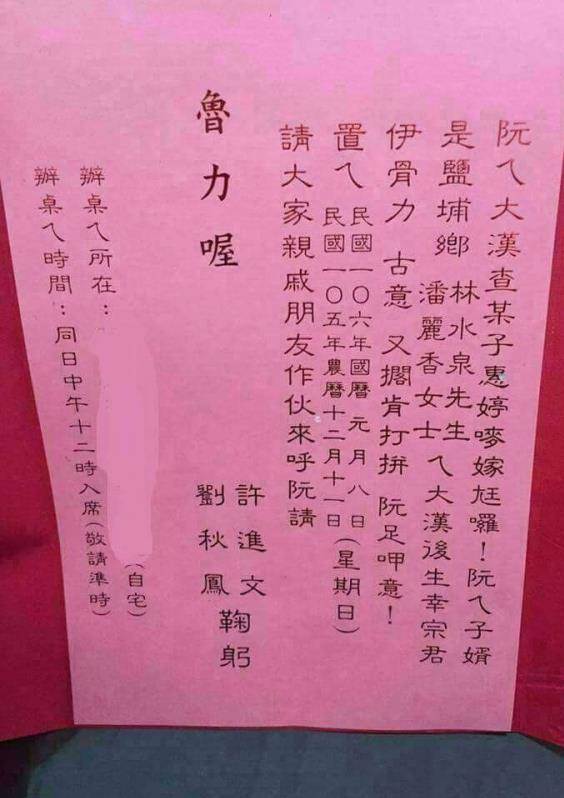 阮ㄟ大漢查某子惠婷嘜嫁尪囉！阮ㄟ子婿
是鹽埔鄉 林水泉先生
潘麗香女士 ㄟ大漢後生幸宗君
伊骨力 古意 又擱肯打拚 阮足呷意！
置ㄟ 民國一〇六年國曆 元月八日
民國一〇五年農曆十二月十一日(星期日)
請大家親戚朋友作伙來呼阮請
魯力喔
許進文
劉秋鳳
鞠躬
辦桌ㄟ所在：(自宅)
辦桌ㄟ時間：同日中午十二時入席(敬請準時)